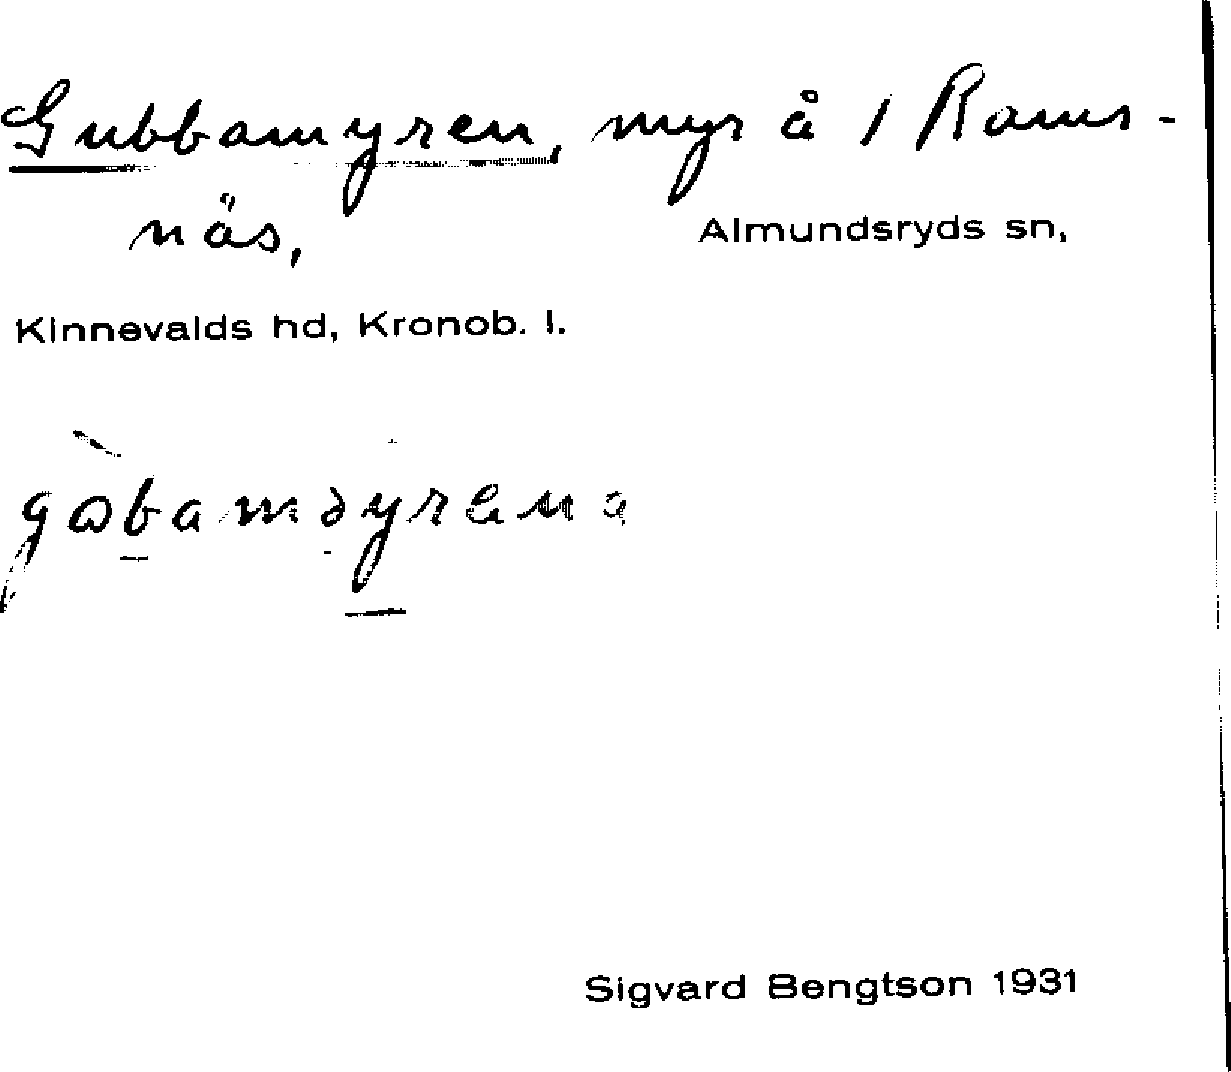 Gubbamyren, myr å 1 Rams-
näs, Almundsryds sn,
Kinnevalds hd, Kronob. l.
Sigvard Bengtson 1931